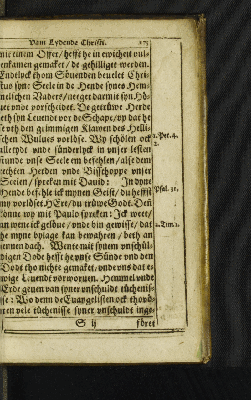 Vam Lydende Christi. 275
mit einem Offer / hefft he in ewicheit vul-
enkamen gemaket / de gehilliget werden.
Endelyck thom Söuenden beuelet Chri-
stus syne Seele in de Hende synes Hem-
melischen Vaders /
uet vnde vorscheidet. De getrüwe Herde
leth syn Leuendt vor de Schape / vp dat he
se uth den grimmigen Klawen des Helli-
schen Wulues vorlöse. Wy schölen ock
alletydt vnde sünderlyck in vnser lesten
stunde vnse Seele em befehlen / alse dem
rechten Herden vnde Bisschoppe vnser
Seelen / spreken mit Dauid: In dyne
Hende befehle ick mynen Geist / du heffst
my vorlöset Here / du trüwe Godt. Den
könne wy mit Paulo spreken: Ick weet /
an wene ick gelöue / vnde bin gewisse / dat
he myne bylage kan bewahren / beth an
jennen dach. Wente mit synem vnschül-
digen Dode hefft he vnse Sünde vnd den
Dodt tho nichte gemaket / vnde vns dat e-
wige Leuende vorworuen. Hemmel vnde
Erde geuen van syner vnschuldt tüchenis-
se: Wo denn de Euangelisten ock
ren vele tüchenisse syner vnschuldt inge-
S ij föret
1. Pet. 4.
2.
Psal. 31.
2. Tim. 1.